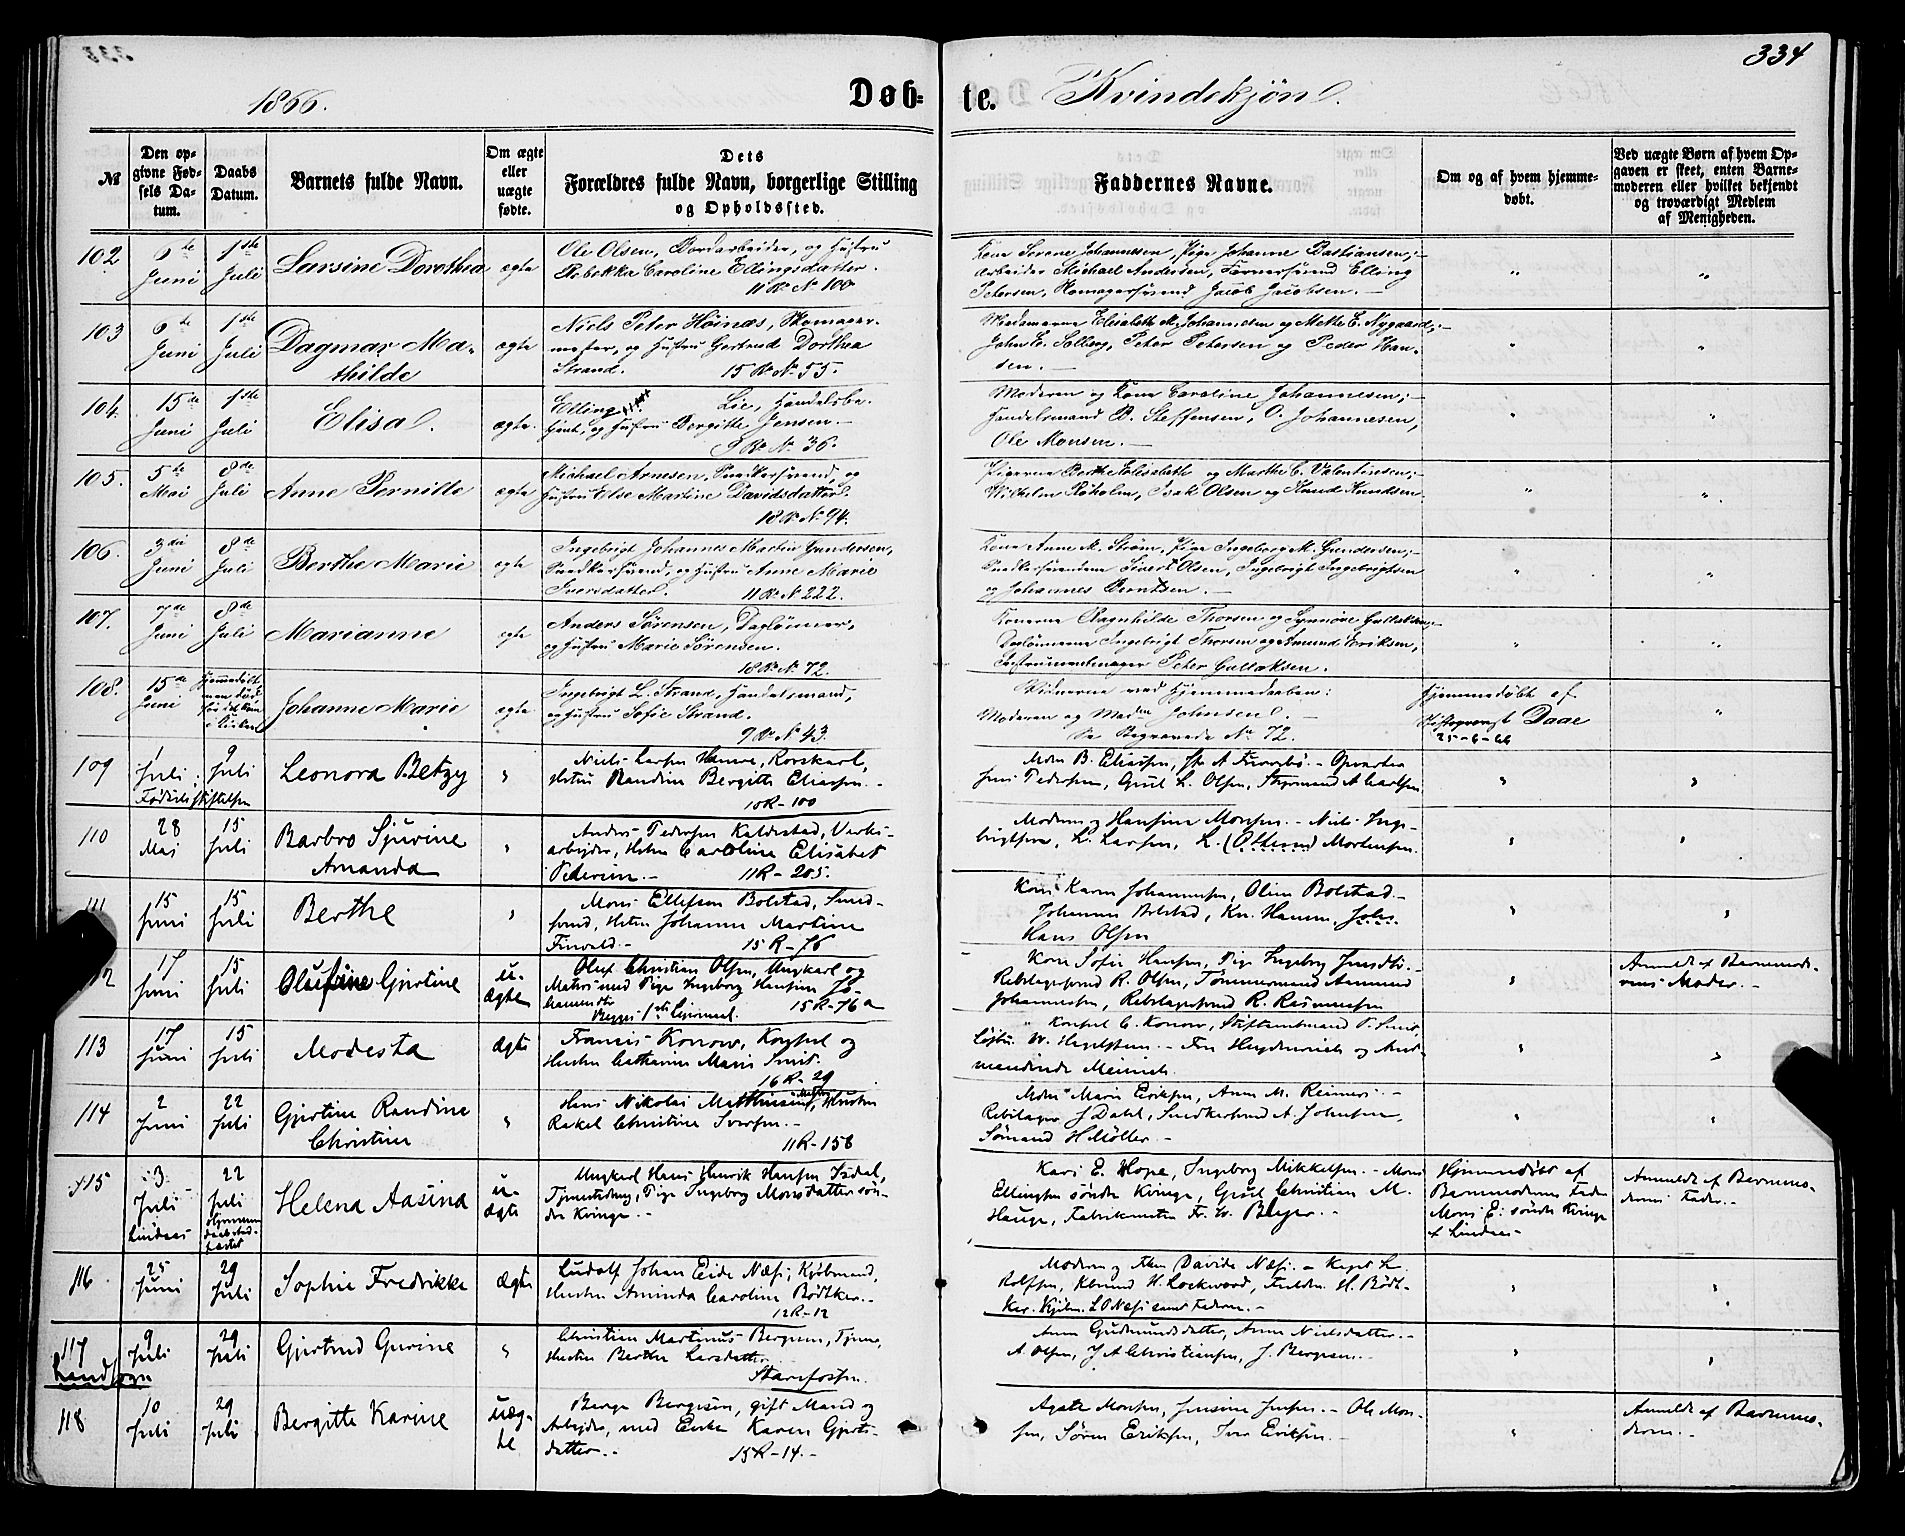 334
1866.
Døb-
te.
Kvindekjøn.
№
Den op-
givne Fød-
sels Da-
tum.
Daabs
Datum.
Barnets fulde Navn.
Om ægte
eller
uægte
fødte.
Dets
Forældres fulde Navn, borgerlige Stilling
og Opholdssted.
Faddernes Navne.
Om og af hvem hjemme-
døbt.
Ved uægte Børn af hvem Op-
gaven er skeet, enten Barne-
moderen eller hvilket bekjendt
og troværdigt Medlem
af Menigheden.
102
6te
Juni
1ste
Juli
Larsine Dorothea
ægte
Ole Olsen, Bordarbeider, og Hustru
Rebekka Caroline Ellingsdatter.
11 R. No 100
Kone Serene Johannesen, Pige Johanne Bastiansen;
Arbeider Michael Andersen, Farversvend Elling
Petersen, Skomagersvend Jacob Jacobsen.
103
6te
Juni
1ste
Juli
Dagmar Ma-
thilde
ægte
Niels Peter Høinæs, Skomager-
mester, og Hustru Gertrud Dorthea
Strand. 15 R. No 55.
Madamerne Elisabeth M. Johannesen og Mette E. Nygaard;
John E. Solberg, Peter Petersen og Peder Han-
sen.
104.
15de
Juni
1ste
Juli
Elisa.
ægte.
Elling Lie, Handelsbe-
tjent, og Hustru Bergitte Jensen.
9 R. No 36.
Moderen og Kone Caroline Johannesen;
Handelsmand B. Steffensen, O. Johannesen,
Ole Monsen.
105.
5te
Mai
8de
Juli
Anne Pernille
ægte
Michael Arnesen, Snedkersvend, og
Hustru Else Martine Davidsdatter.
18 R. No 94.
Pigerne Berthe Elisabeth og Marthe C. Valentinsen;
Wilhelm Røholm, Isak Olsen og Knud Knudsen
106.
3die
Juni
8de
Juli
Berthe Marie
ægte
Ingebrigt Johannes Martin Gundersen,
Snedkersvend, og Hustru Anne Marie
Iversdatter. 11 R. No 222.
Kone Anne M. Strøm, Pige Ingeborg M. Gundersen;
Snedkersvendene Sivert Olsen, Ingebrigt Ingebrigtsen
og Johannes Berntsen.
107.
7de
Juni
8de
Juli
Marianne
ægte
Anders Sørensen, Daglønner,
og Hustru Marie Sørensen.
18 R. No 72.
Konerne Ragnhilde Thorsen og Synnøve Gullaksen;
Daglønnerne Ingebrigt Thorsen og Amund Eriksen,
Instrumentmager Peter Gullaksen.
108.
15de
Juni
Hjemmedøbt
men døde
Johanne Marie
ægte
Ingebrigt L. Strand, Handelsmand,
og Hustru Sofie Strand.
9 R. No 43.
Vidnerne ved Hjemmedaaben:
Moderen og Madm Johnsen.
Se Begravede No 72.
Hjemmedøbt af
Stiftsprovst Daae
25-6-66
109
1
Juli
Fødselsstiftelsen
9
Juli
Leonora Betzy
Niels Larsen Hamre, Rorskarl,
Hstru Randine Bergitte Eliassen.
10R-100
Mdm B. Eliassen, A Furrebø. Opvarter
Jens Pedersen, Gsel L. Olsen, Styrmand A Carlsen
110
28
Maj
15
Juli
Barbro Sjurine
Amanda
Anders Pedersen Kaldestad, Verks-
arbejder, Hstru Caroline Elisabet
Pedersen. 11R-205.
Moderen og Hansine Monsen. Niels Inge-
brigtsen, L. Larsen, L. Osmund Mortensen.
111
15
Juni
15
Juli
Berthe
Mons Ellefsen Bolstad, Smed-
svend, Hstru Johanne Martine
15 R-76
Kone Karen Johannesen, Oline Bolstad.
Johannes Bolstad, Kn. Hamre, Johs.
Hans Olsen
112
17
Juni
15
Juli
Olufine Gjertine
u-
ægte
Oluf Christian Olsen, Ungkarl og
Matros med Pige Ingeborg Hansine Jo-
hannesdtr 15 R-76a
Begges 1ste Lejermaal.
Kone Sofie Hansen, Pige Ingeborg
Rebslagersvend R. Olsen, Tømmermand Aamund
Johannessen, Rebslagersvend R. Rasmussen
Anmeldt af Barnemode-
rens Moder.
113
17
Juni
15
Juli
Modesta
ægte
Francis Konow, Konsul og
Hustru Catharine Marie Smit.
16 R-29
Konsul C. Konow, Stiftamtmand
W. Hagelsteen. Fru og Amt-
mandinde Meinich.
114
2
Juni
22
Juli
Gjertine Randine
Christine
Hans Nikolai Mathiesen, Matros, Hustru
Rakel Christine Iversen.
11R-158
Mdm Marie Eriksen, Anne M. Reimers.
Rebslager J Dahl, Snedkersvend A. Johnsen,
Sømand H Möller.
115
3
Juli
Lindaas
22
Juli
Helena Aasina
u-
ægte
Ungkarl Hans Henrik Hansen Isdal,
Tjenestedreng, Pige Ingeborg Monsdatter søn-
dre Kvinge.
Kari E. Hope, Ingeborg Mikkelsen. Mons
Ellingsen søndre Kvinge, Gsel Christian M.
Hauge, Fabrikmester Fr. W. Bleyer.
Hjemmedøbt af
Barnmoderens Fader
Mons E. søndre Kvinge
af Lindaas
Anmeldt af Barnemo-
derens Fader.
116
25
Juni
29
Juli
Sophie Fredrikke
ægte
Ludolf Johan Eide Næss, Kjøbmand,
Hustru Aminda Caroline Bødtker.
12R-12
Moderen og Frkn Davida Næss. Kapt L.
Rolfsen, Kbmand H. Lockwood, H. Bødt-
ker, Kjøbm. L O Næss samt Faderen.
117
Landsogn
9
Juli
29
Juli
Gjertrud Gurine
Christian Martinus Bergesen, Tjener,
Hustru Berthe Larsdatter
Starefossen.
Anna Gudmundsdatter, Anna Nielsdatter.
A Olsen, J A Christiansen, J. Bergesen.
118
10
Juli
29
Juli
Bergitte Karine
uæg-
te
Berge Bergesen, gift Mand og
Arbejder, med Enke Karen Gjerts-
datter. 15R-14.
Agate Monsen, Jensine Jensen. Ole Mon-
sen, Søren Eriksen, Iver Eriksen.
Anmeldt af Barnemo-
deren.